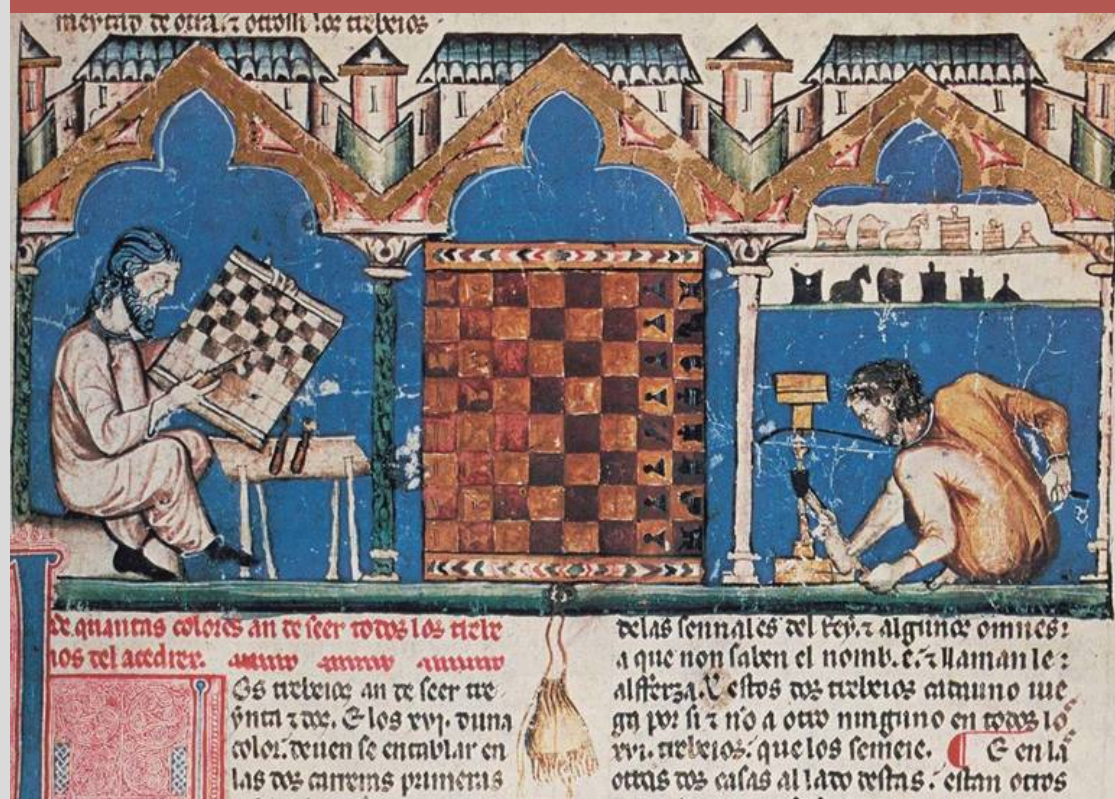 meytad de otra. ⁊ otrossi los trebeios.
De quantas colores an de seer todos los trebe
ios del acedrex.
Os trebeios an de seer tre
ynta ⁊ dos. E los xvj. duna
color. deuen se entablar en
las dos carreras primeras
delas sennales del Rey. ⁊ algunos omnes:
a que non saben el nombre. ⁊ llaman le:
alfferza. E estos dos trebeios cada uno iue
ga por si ⁊ no a otro ninguno en todos los
xvi. trebeios. que los semeie. ¶ E en las
otras dos casas al lado destas. estan otros